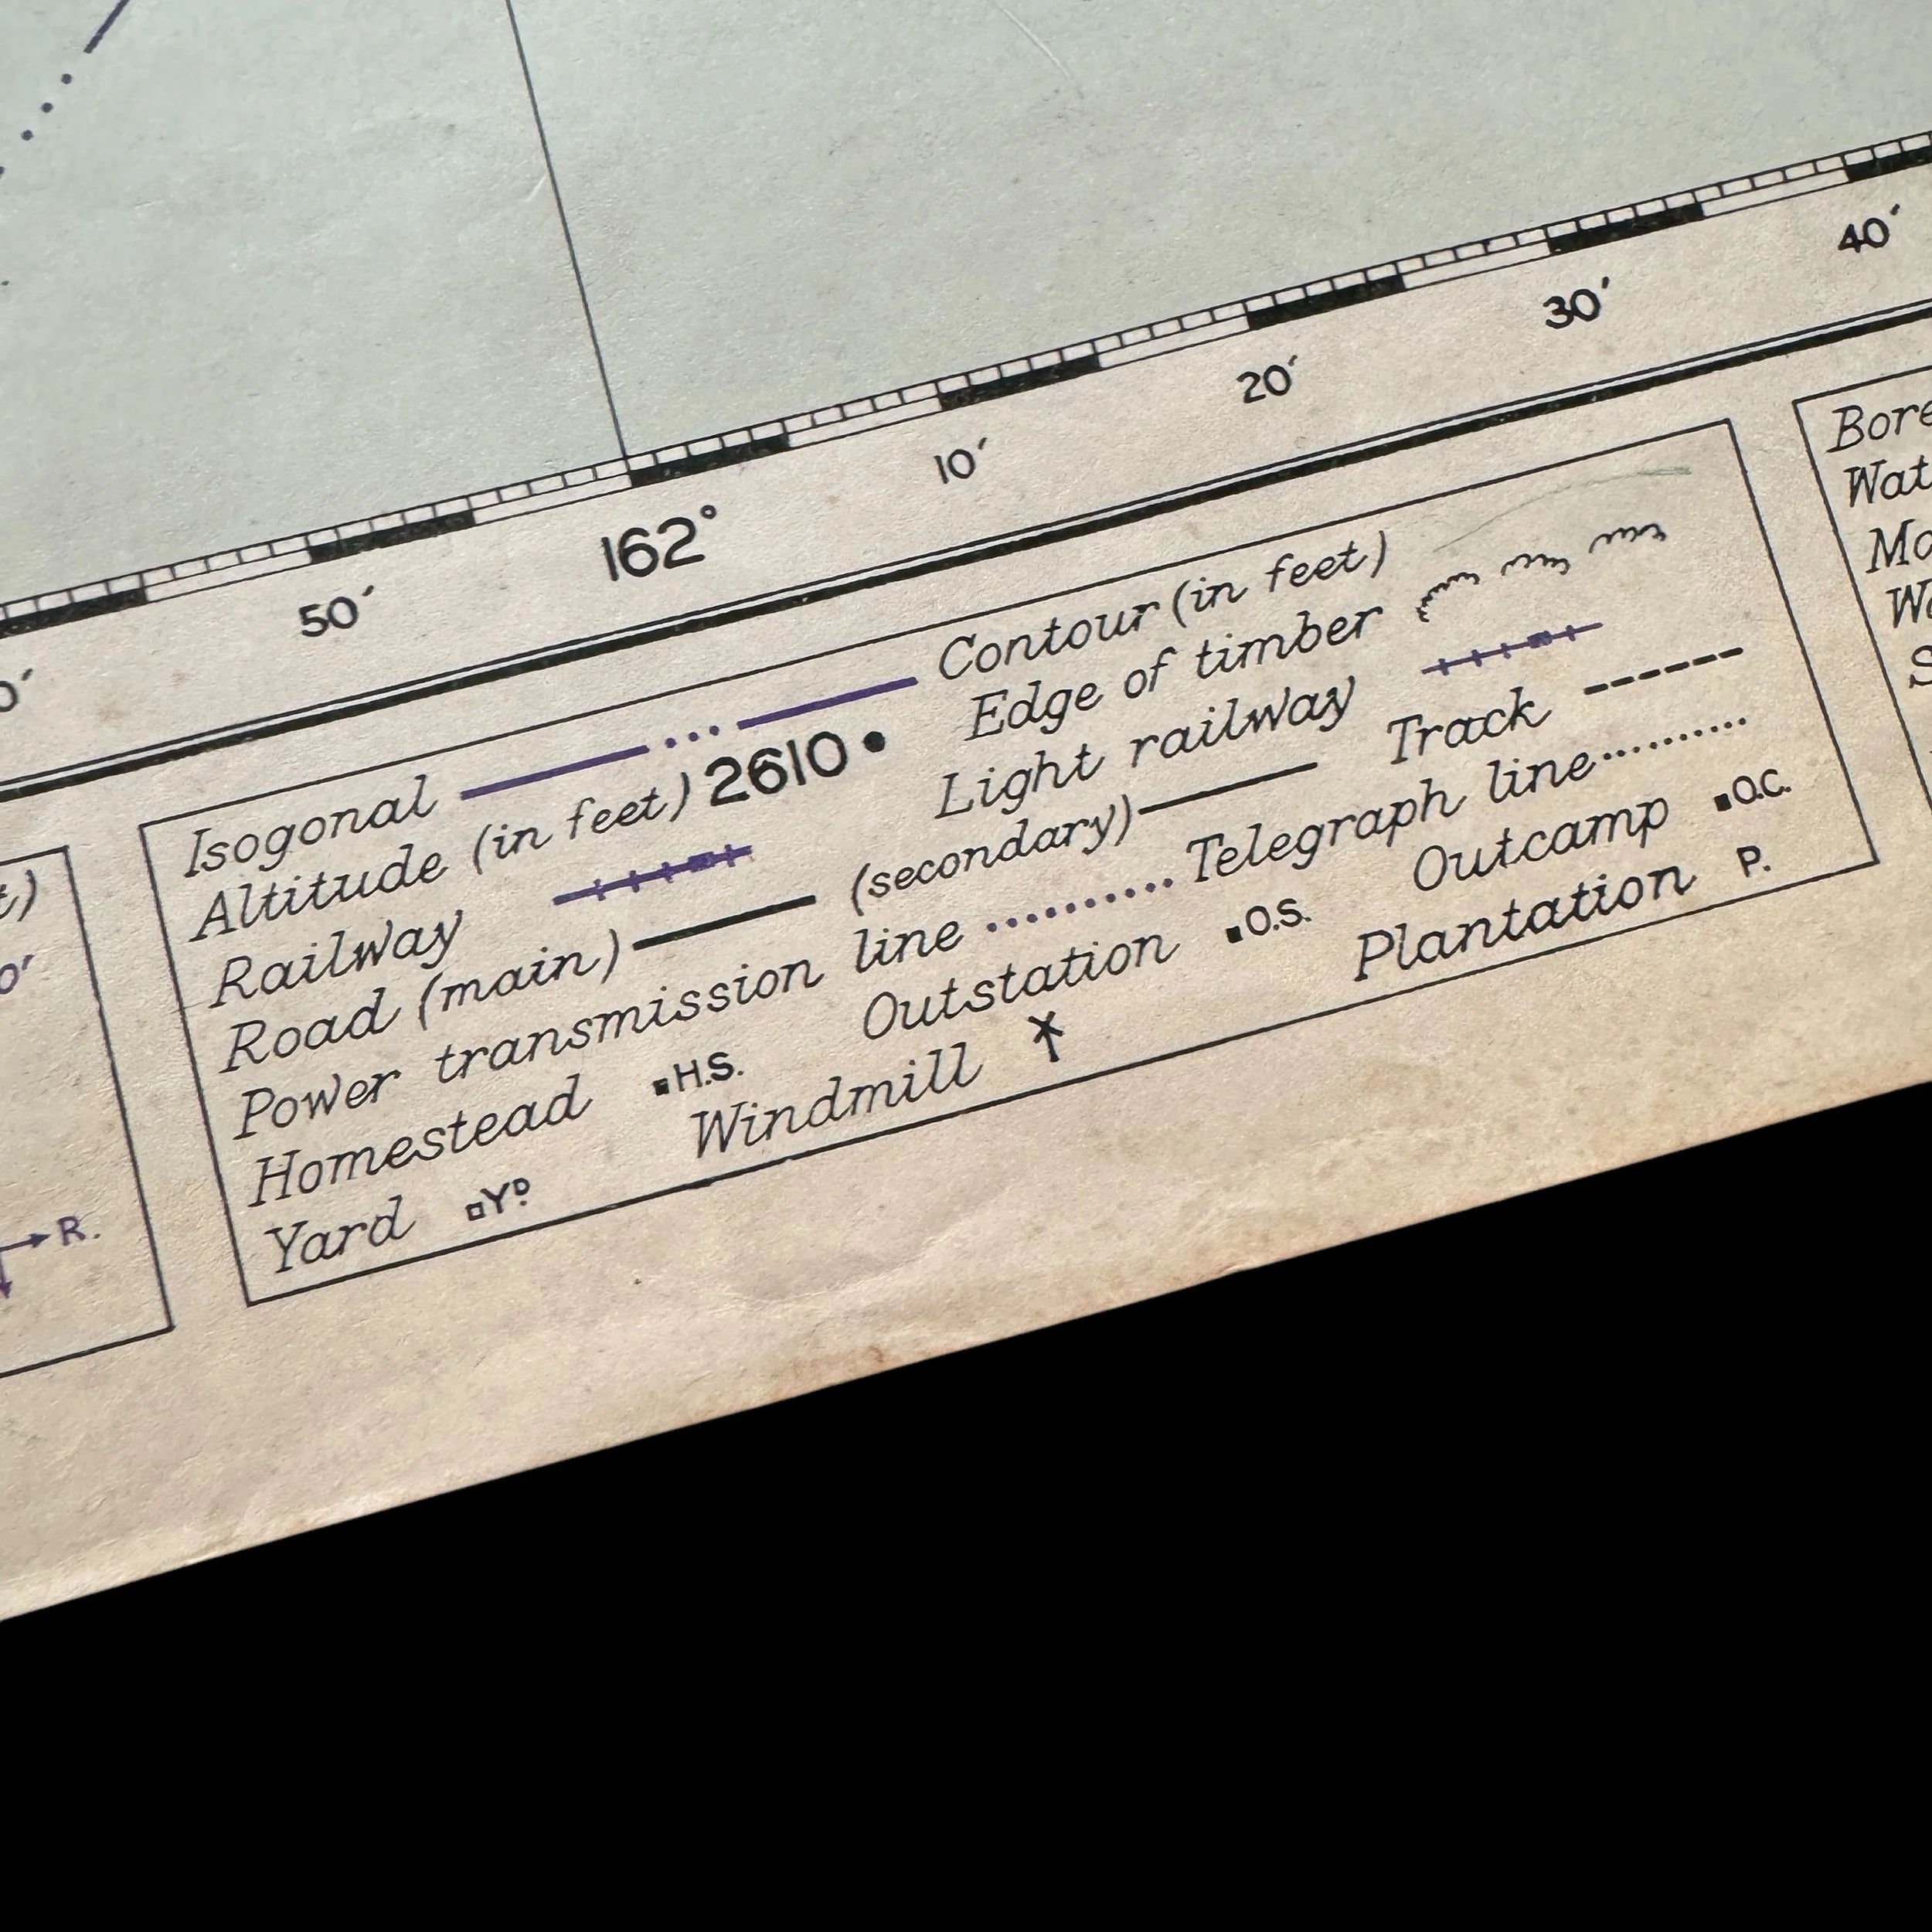 40′
30′
20′
10′
162°
50′
Isogonal Contour (in feet)
Altitude (in feet) 2610 Edge of timber
Railway Light railway Track
Road (main) (secondary) Telegraph line
Power transmission line Outcamp O.C.
Homestead H.S. Outstation O.S. Plantation P.
Yard Yᴰ. Windmill
R.